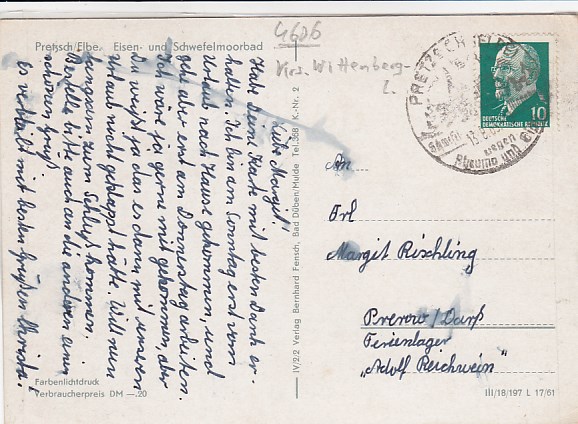 Pretsch/Elbe. Eisen- und Schwefelmoorbad
4606
Krs. Wittenberg-
L.
Liebe Margit!
Habe Deine Karte mit bestem Dank er-
halten. Ich bin am Sonntag erst vom
Urlaub nach Hause gekommen und
aber erst am Donnerstag arbeiten.
Ich wäre ja gerne mitgekommen aber
Du weißt ja das es dann mit unserem
Urlaub nicht geklappt hätte. Will nun
langsam zum Schluß kommen.
Bestelle bitte auch an die anderen einen
schönen Gruß
Es verbleibt mit besten Grüßen
Farbenlichtdruck
Verbraucherpreis DM —.20
IV/2/2 Verlag Bernhard Fensch, Bad Düben/Mulde Tel. 368 K.-Nr. 2
PRETZSCH (ELBE)
gegen
Rheuma und
10
DEUTSCHE
DEMOKRATISCHE REPUBLIK
An
Frl
Margit Rischling
Prerow/Darß
Ferienlager
„Adolf Reichwein"
III/18/197 L 17/61